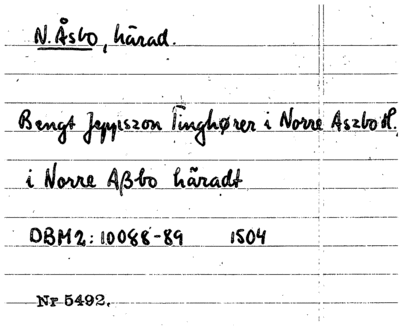 N. Åsbo, härad.
Bengt Jeppszon Tinghører i Norre Aszbo H.
i Norre Aßbo häradt
DBM2: 10088-89 1504
Nr 5492.